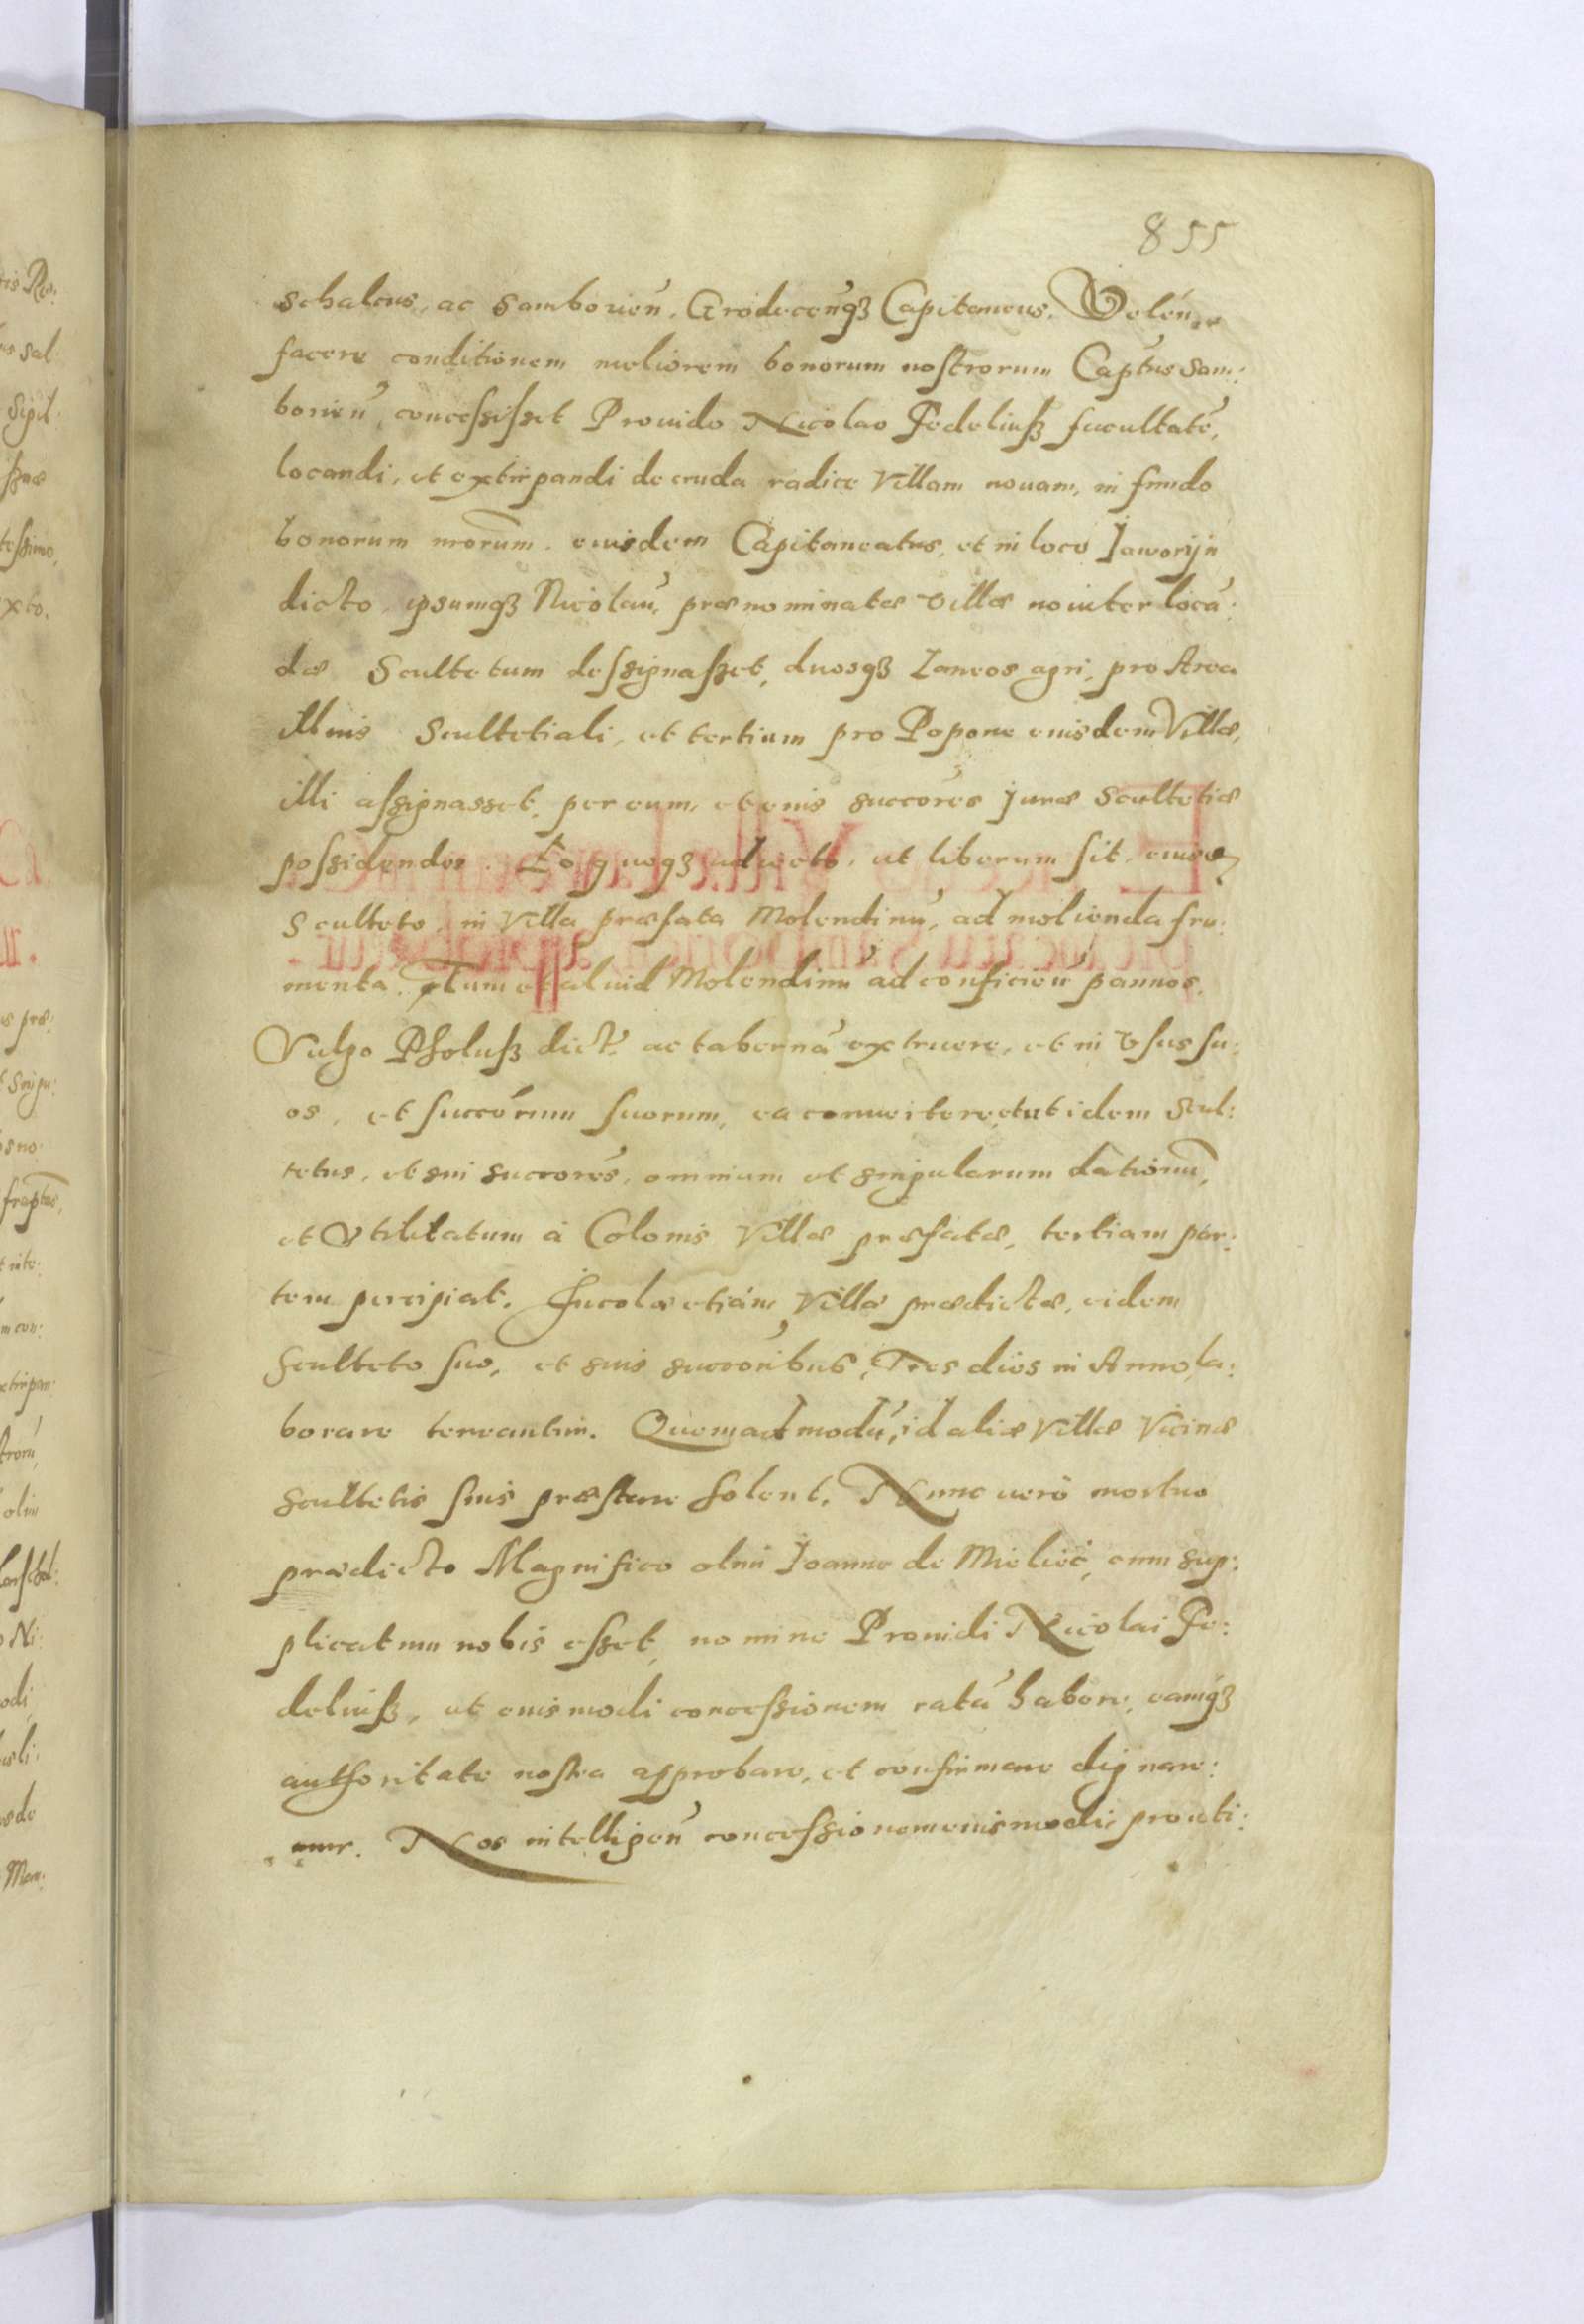 855
schalcus, ac Samborien̄. Grodecen̄qꝫ Capitaneus. Volen̄.
facere conditionem meliorem bonorum nostrorum Captus Sam:
borien̄, concessisset Prouido Nicolao Fedeliusz facultatē,
locandi, et extirpandi de cruda radice Villam nouam, in fundo
bonorum nrorum. eiusdem Capitaneatus, et in loco Jaworÿn
dicto, ipsumqꝫ Nicolaū, prænominatæ Villæ nouiter locā:
dæ Scultetum dessignasset, duosqꝫ Laneos agri, pro Area
illius Scultetiali, et tertium pro Popone eiusdem Villæ,
illi assignasset. per eum, et eius succōres Juræ Scultetiæ
possidendos. Eo quoqꝫ adiecto, ut liberum sit, eidem
Sculteto, in Villa præfata Molendinū, ad molienda fru:
menta. Tum et aliud Molendinū ad conficien̄ pannos.
Vulgo Pholusz dict̄. ac tabernā extruere, et in Vsus su:
os, et succōrum suorum, ea conuertere, et ut idem Scul:
tetus, et sui succorēs, omnium et singularum dationū,
et Vtilitatum à Colonis Villæ præfatæ, tertiam par:
tem percipiat. Incolæ etiam Villæ prædictæ, eidem
Sculteto suo, et suis succoribus, Tres dies in Anno la:
borare teneantur. Quemadmodū, id aliæ Villæ Vicinæ
scultetis suis præstare solent. Nunc uerò mortuo
prædicto Magnifico olim Joanne de Mieliec, cum sup:
plicatum nobis esset, nomine Prouidi Nicolai Fe:
deliusz, ut eiusmodi concessionem ratā habere, eamqꝫ
authoritate nostra approbare, et confirmare dignare:
mur. Nos intelligen̄ concessionem eiusmodi, prouti: